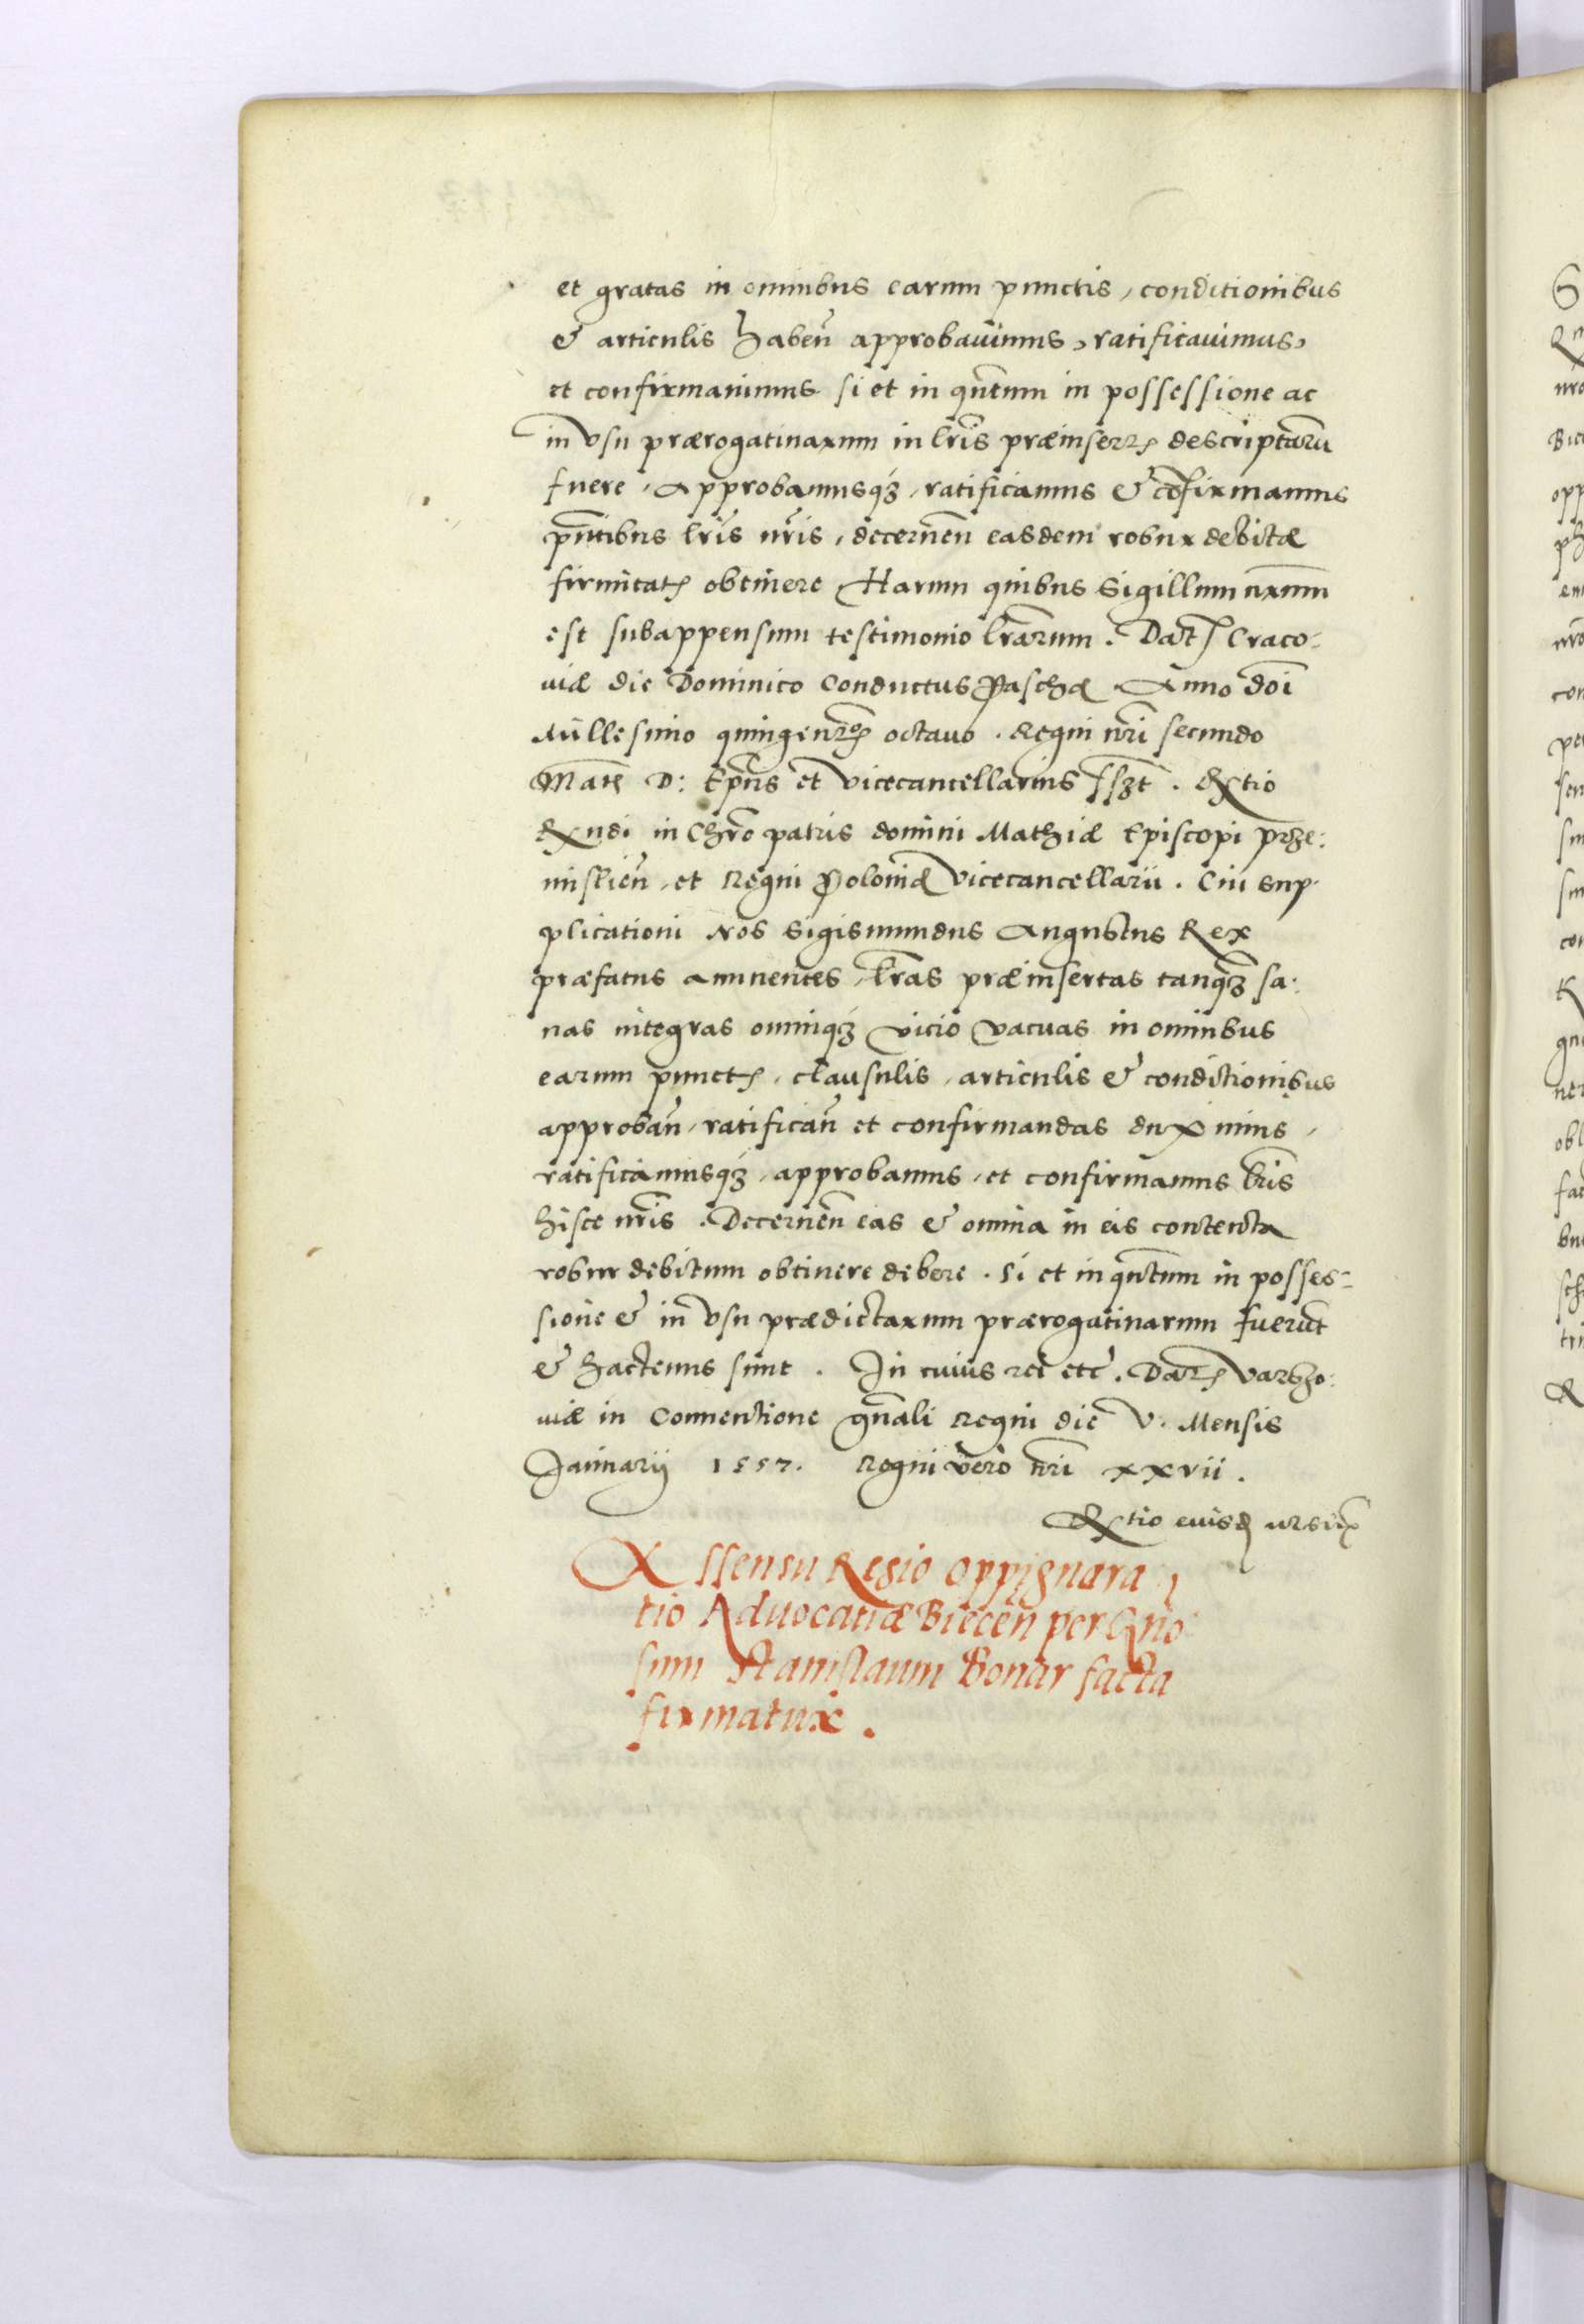 et gratas in omnibus earum punctis, conditionibus
& articulis habeñ approbavimus, ratificavimus,
et confirmavimus si et in qūtum in possessione ac
in vsu prærogativarum in lr̃is præinsert̨ descriptarũ
fuere, Approbamusqꝫ, ratificamus & cõfirmamus
pñtibus lr̃is nr̃is, decerneñ easdem robur debitæ
firmitat̨ obtinere Harum quibus Sigillum nr̃um
est subappensum testimonio lr̃arum. Dat̨ Craco-
uiæ die Dominico Conductus Paschæ Anno dñi
Millesimo quingent̃o octavo. Regni nr̃i secundo
Mat̨ D: Ep̃us et vicecancellarius sszt. Rȩtio
Rñdi in Chr̃o patris domini Mathiæ Episcopi prze:
misłieñ, et Regni Poloniæ vicecancellarii. Cui sup-
plicationi Nos Sigismundus Augustus Rex
præfatus annuentes, lr̃as præinsertas tanqꝫ sa:
nas integras omniqꝫ vicio vacuas in omnibus
earum punct̨, clausulis, articulis & conditionibus
approbañ, ratificañ et confirmandas duximus,
ratificamusqꝫ, approbamus, et confirmamus lr̃is
hisce nr̃is. Decerneñ eas & omnia in eis contenta
robur debitum obtinere debere. Si et in qñtum in posses-
sione & in vsu prædictarum prærogativarum fuerũt
& hactenus sunt. In cuius rei etc̃. Dat̨ Varszo:
uiæ in Conventione gñali Regni die V. Mensis
Januarij 1557. Regni vero nr̃i xxvii.
Rȩtio eiusd̨ ut sup̱
Assensu Regio oppignara
tio Aduocatiæ Bieceñ per Gño
sum Stanislaum Bonar facta
firmatur.